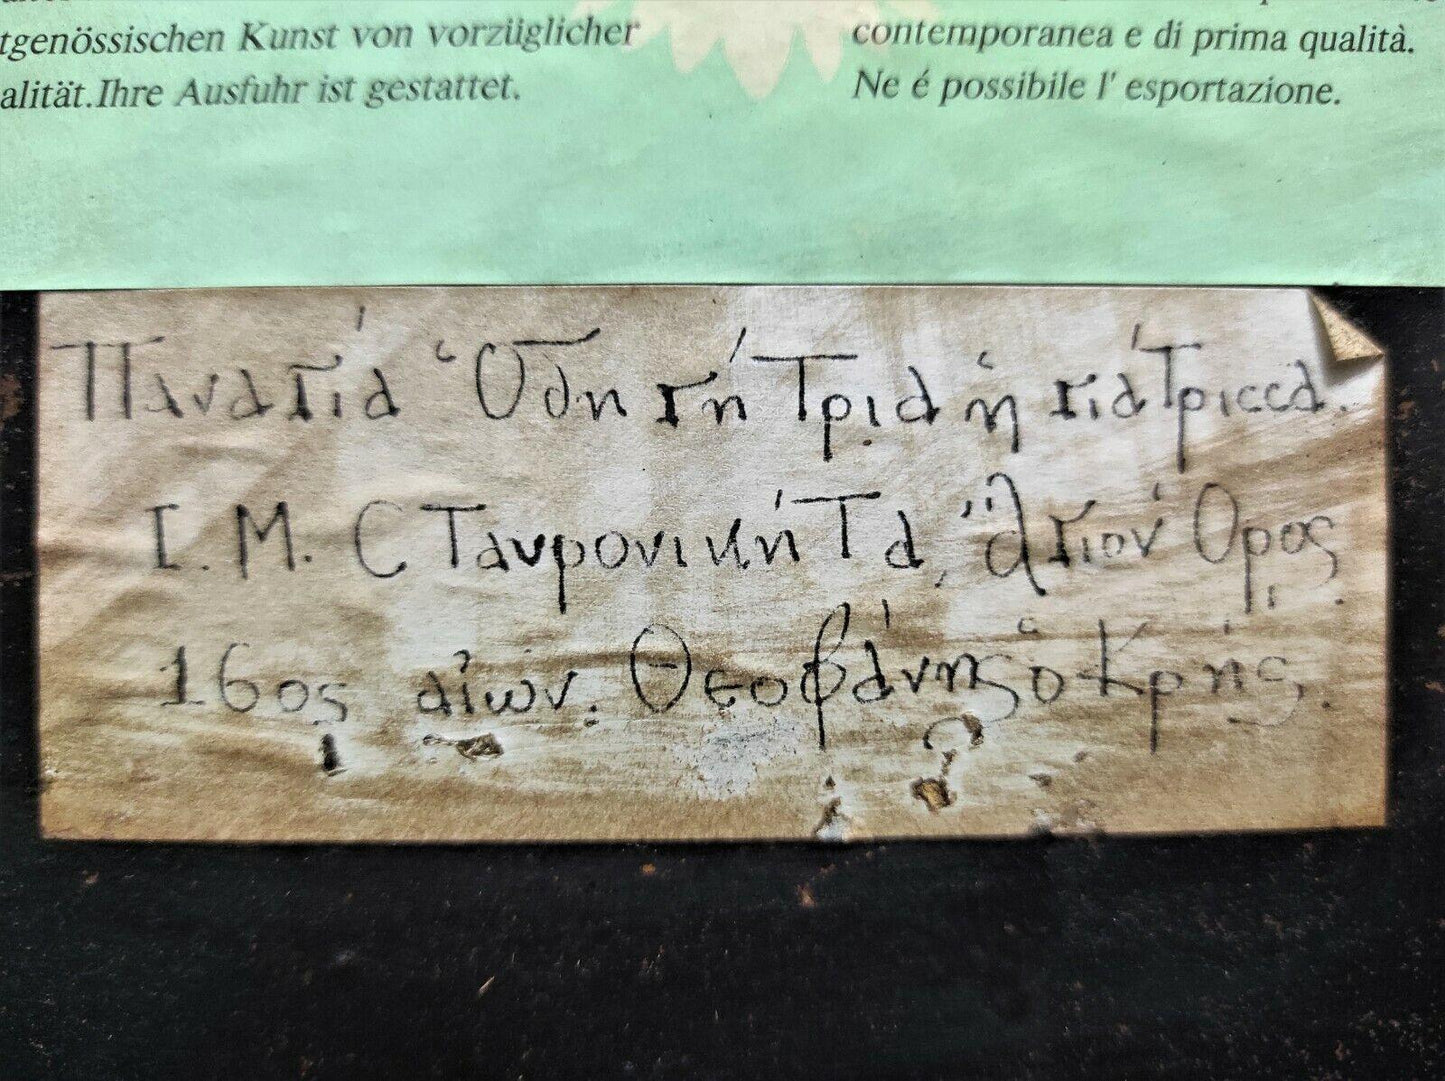 tgenössischen Kunst von vorzüglicher
alität.Ihre Ausfuhr ist gestattet.
contemporanea e di prima qualità.
Ne é possibile l' esportazione.
Παναγία Ὁδηγήτρια ἡ γιάτρισσα.
Ι. Μ. Σταυρονικήτα, Ἅγιον Όρος
16ος αἰων. Θεοφάνης ὁ Κρής.